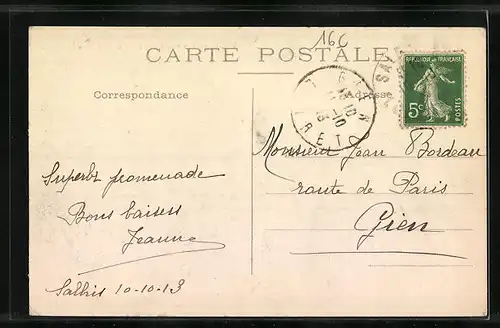 160
CARTE POSTALE
Correspondance
Adresse
REPUBLIQUE FRANÇAISE
5c
POSTES
GIEN
LOIRET
Monsieur Jean Bordeau
route de Paris
Gien
Superbe promenade
Bons baisers
Jeanne
Salbris 10-10-13